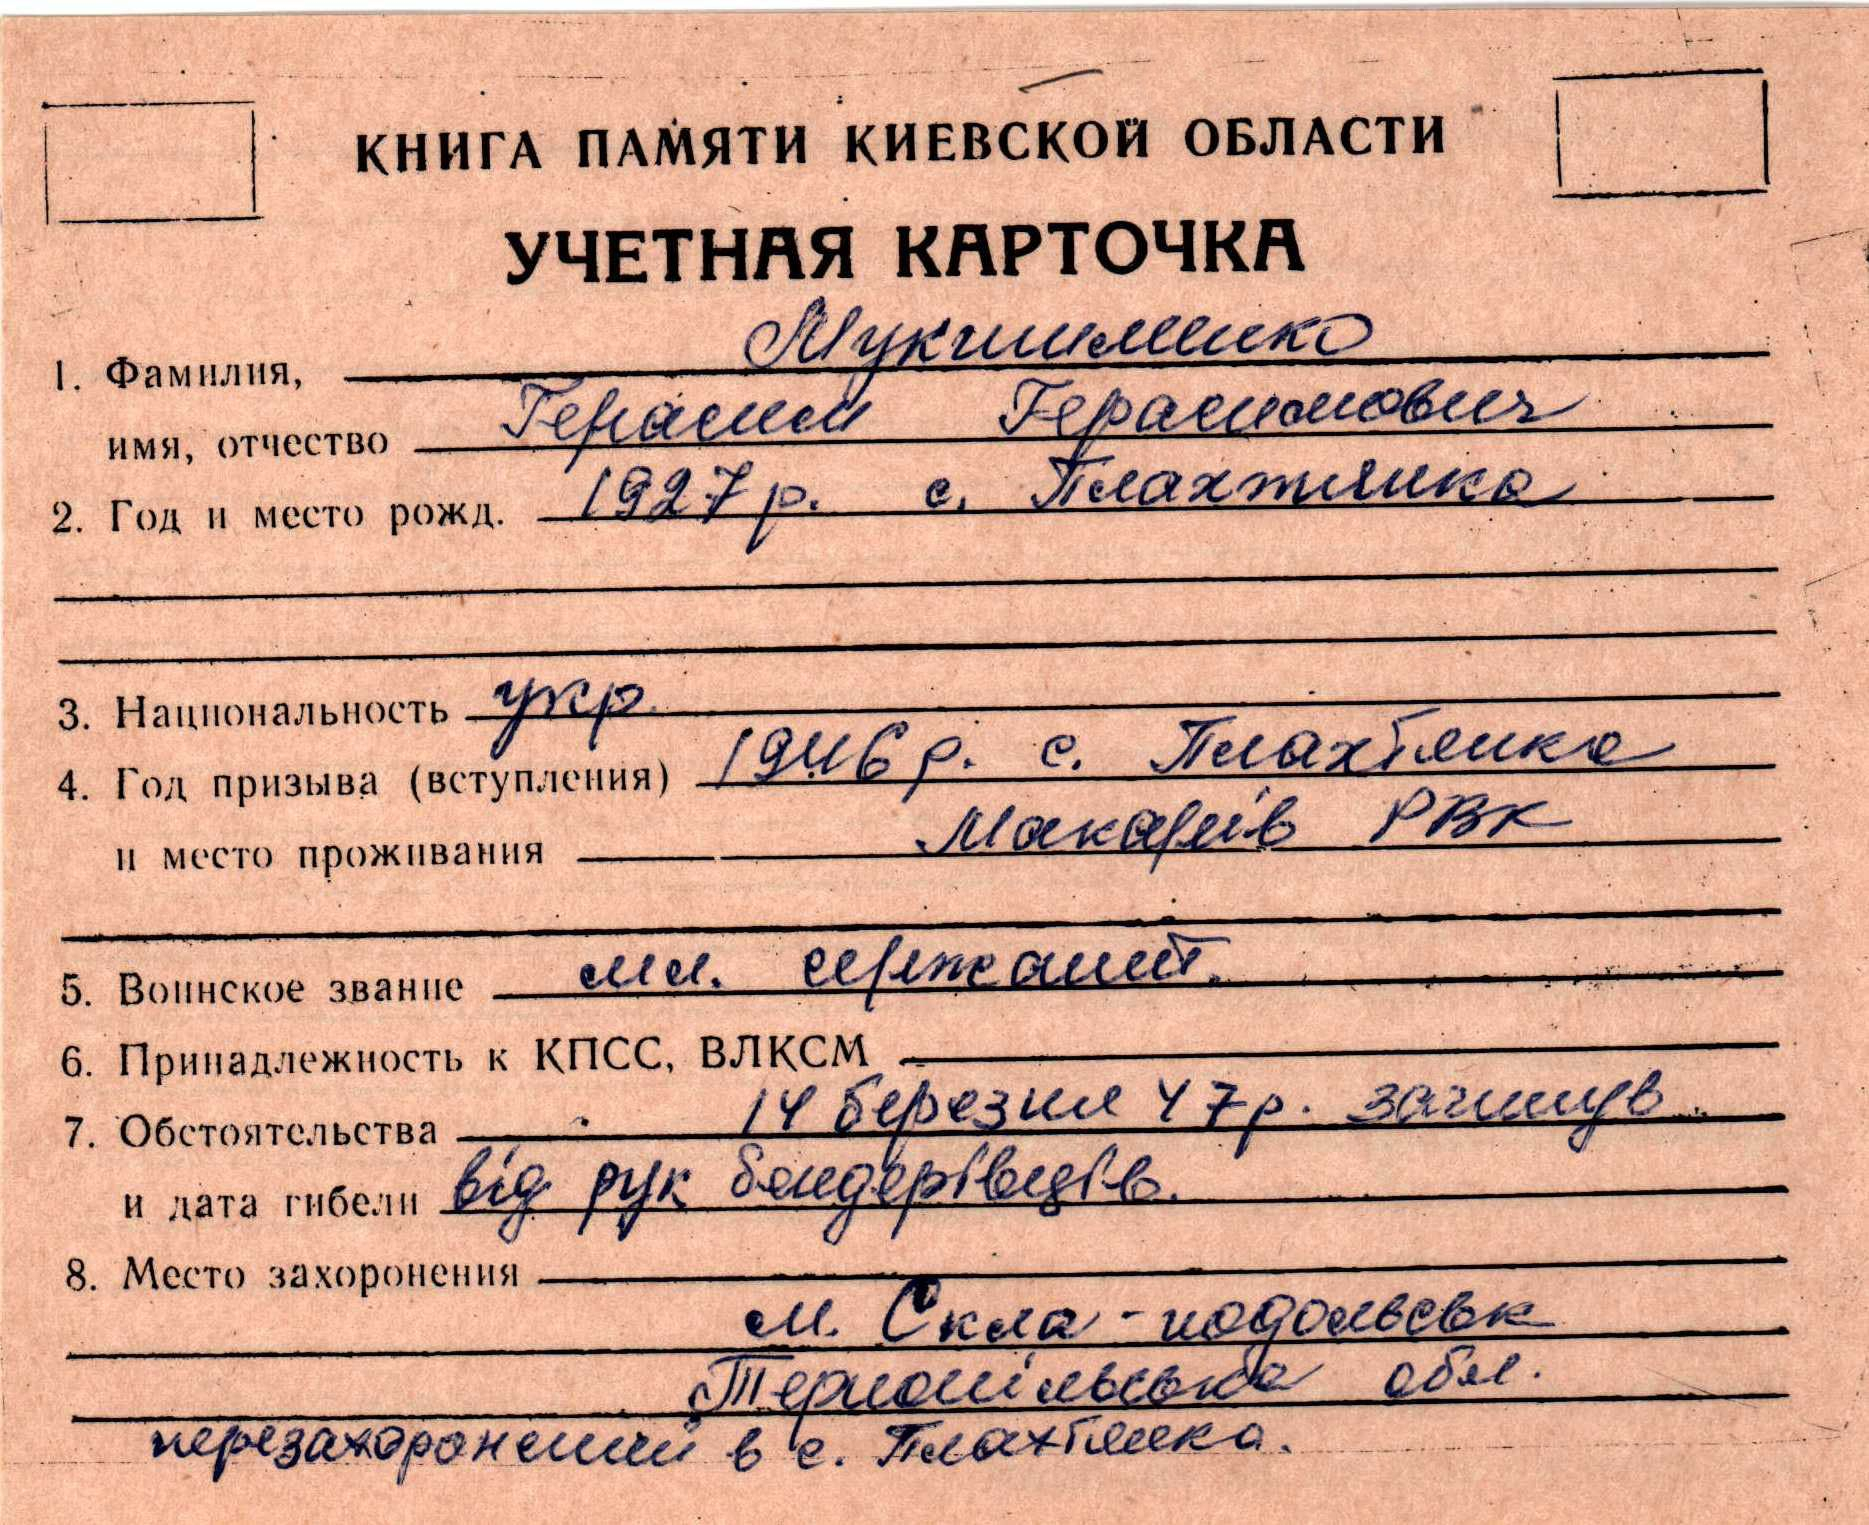 КНИГА ПАМЯТИ КИЕВСКОЙ ОБЛАСТИ
УЧЕТНАЯ КАРТОЧКА
1. Фамилия,
имя, отчество Герасим Герасимович
2. Год и место рожд. 1927 р. с. Плахтянка
3. Национальность укр.
4. Год призыва (вступления) 1946 р. с. Плахтянка
и место проживания Макарів РВК
5. Воинское звание мл. сержант.
6. Принадлежность к КПСС, ВЛКСМ
7. Обстоятельства 14 березня 47 р. загинув
и дата гибели від рук бендерівців.
8. Место захоронения
м. Скла-подольськ
Тернопільська обл.
перезахоронений в с. Плахтянка.